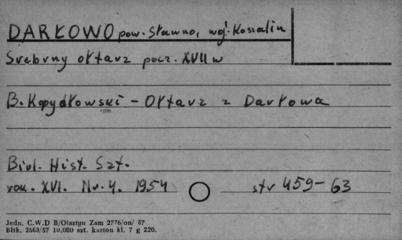 DARŁOWO pow. Sławno, woj. Koszalin
Srebrny ołtarz pocz. XVII w
B. Kopydłowski - Ołtarz z Darłowa
Biul. Hist. Szt.
rok. XVI. Nr. 4. 1954 str 459-63
Jedn. C.W.D B/Olsztyn Zam 2776/on/ 67
Bltk. 2563/57 10.000 szt. karton kl. 7 g 220.